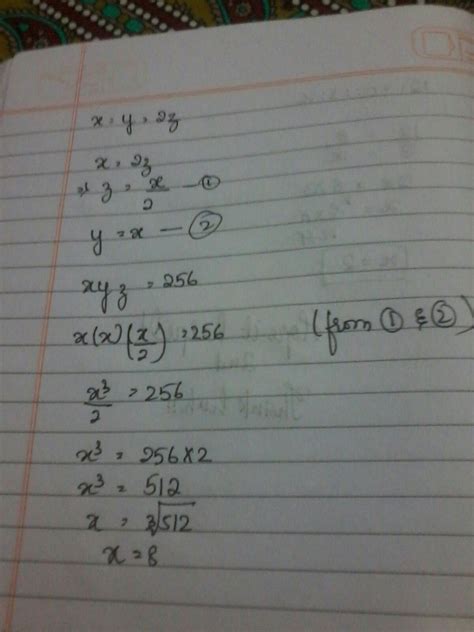 x = y = 2z
x = 2z
⇒ z = x/2 — ①
y = x — ②
xyz = 256
x(x)(x/2) = 256 (from ① & ②)
x³/2 = 256
x³ = 256×2
x³ = 512
x = ∛512
x = 8